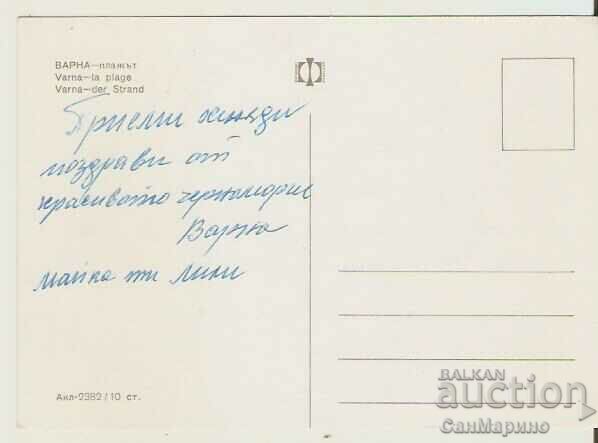 ВАРНА—плажът
Varna—la plage
Varna—der Strand
Приеми хиляди
поздрави от
красивото черноморие
Варна
майка ти Лили
Акл-2382/10 ст.
BALKAN
auction
СанМарино